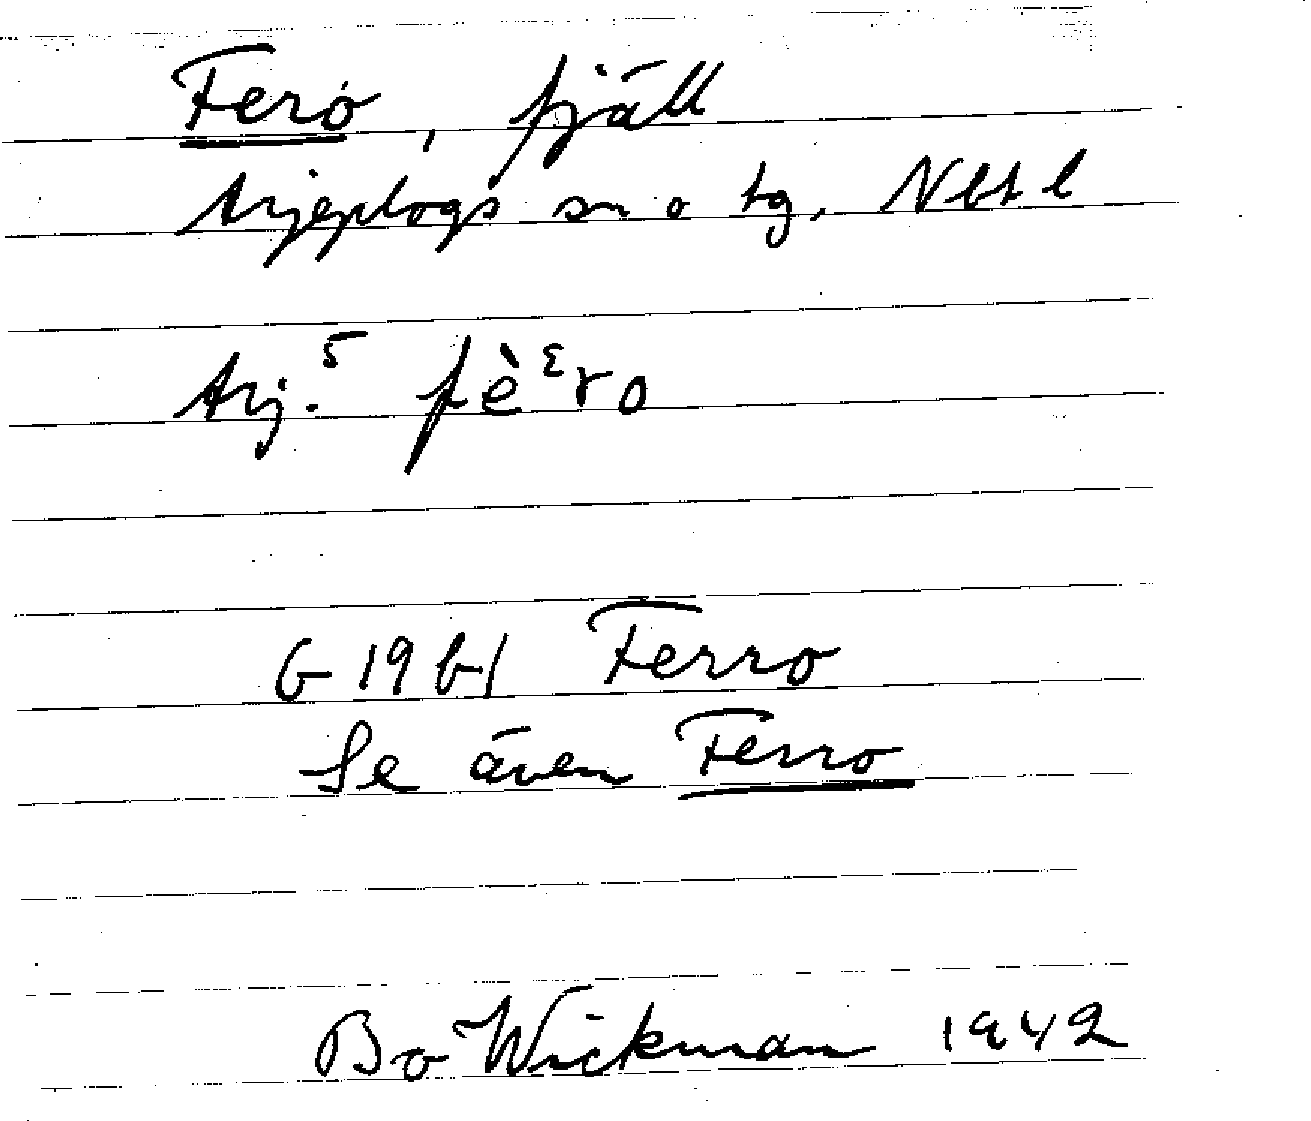 Fero, fjäll
Arjeplogs sn o tg, Nbt l
Arj.⁵ fèᵋro
G 19 bf Ferro
Se även Ferro
Bo Wickman 1942